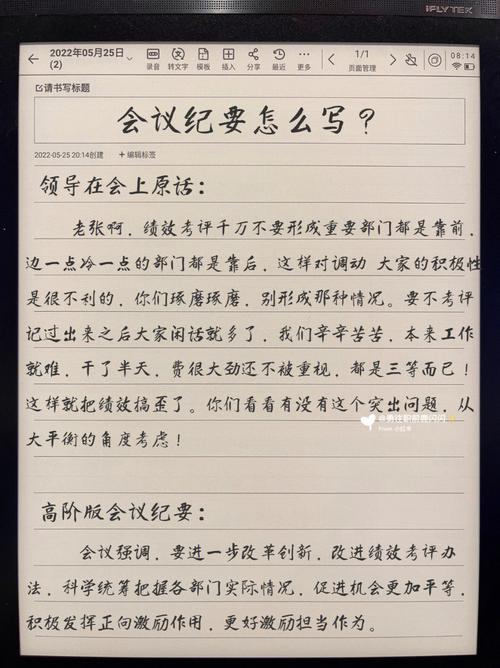 iFLYTEK
2022年05月25日
(2)
录音 转文字 模板 插入 分享 最近 更多
1/1
页面管理
08:14
请书写标题
会议纪要怎么写?
2022-05-25 20:14创建 +编辑标签
领导在会上原话:
老张啊,绩效考评千万不要形成重要部门都是靠前,
边一点冷一点的部门都是靠后,这样对调动 大家的积极性
是很不利的,你们琢磨琢磨,别形成那种情况。要不考评
记过出来之后大家闲话就多了,我们辛辛苦苦,本来工作
就难,干了半天,费很大劲还不被重视,都是三等而已!
这样就把绩效搞歪了。你们看看有没有这个突出问题,从
大平衡的角度考虑!
From 小红书
高阶版会议纪要:
会议强调,要进一步改革创新,改进绩效考评办
法,科学统筹把握各部门实际情况,促进机会更加平等,
积极发挥正向激励作用,更好激励担当作为。